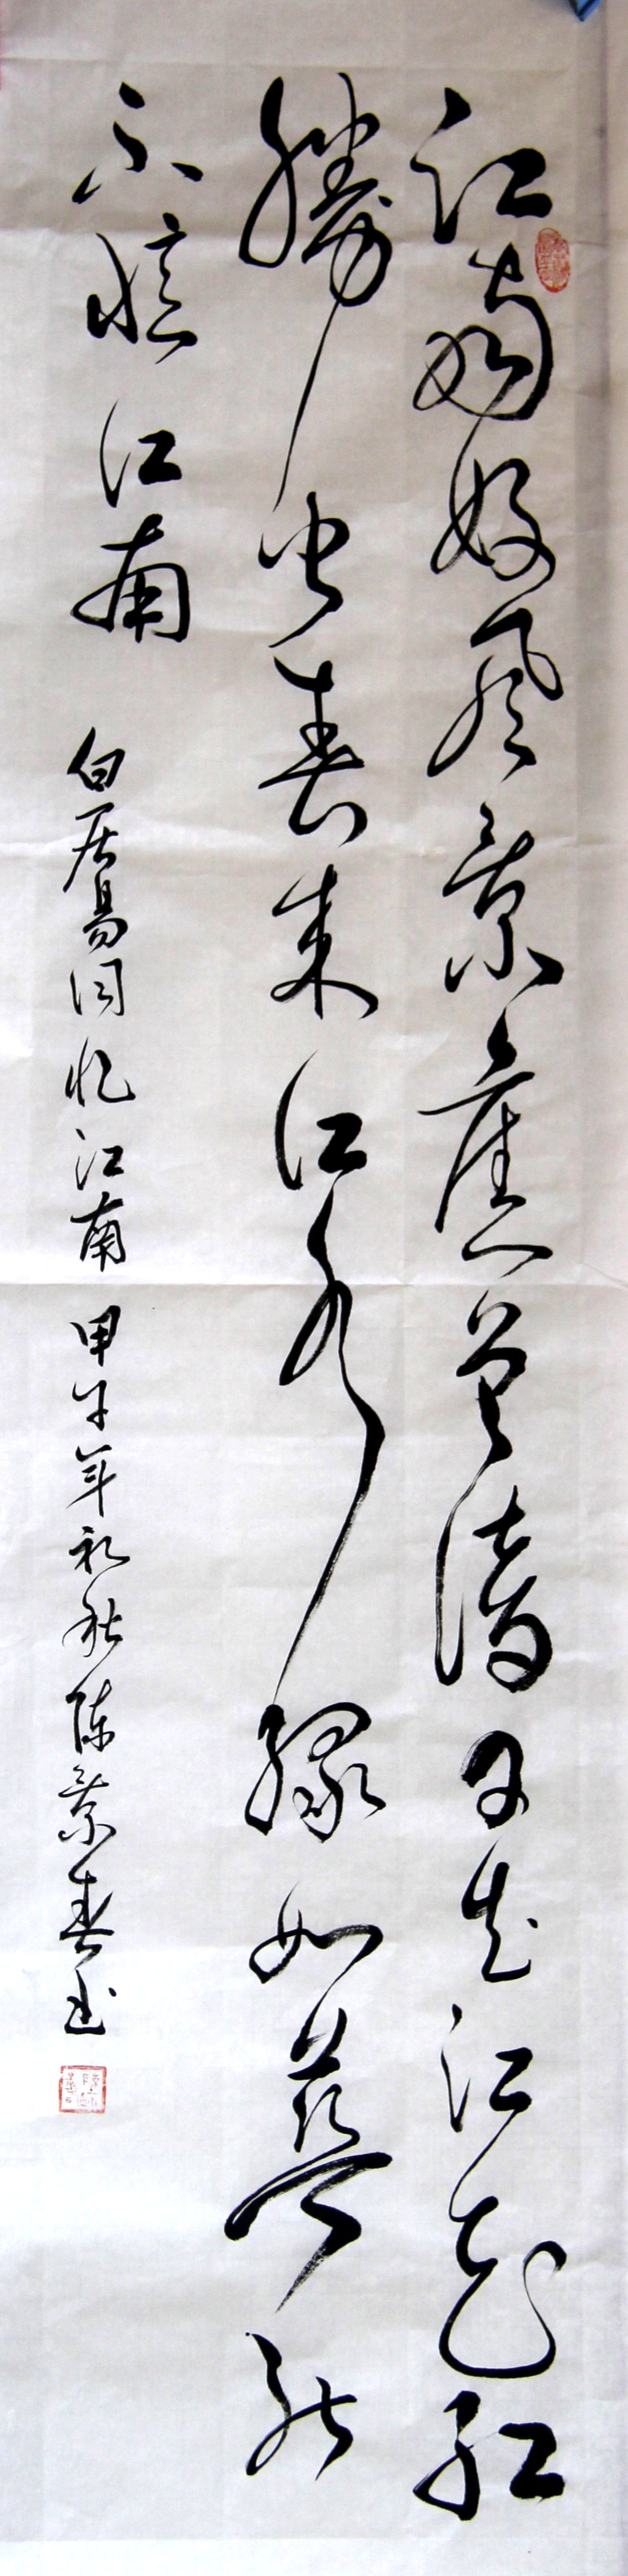 江南好风景舊曾谙日出江花红
勝火春来江水绿如藍能
不憶江南 白居易词忆江南 甲午年初秋陈景春书